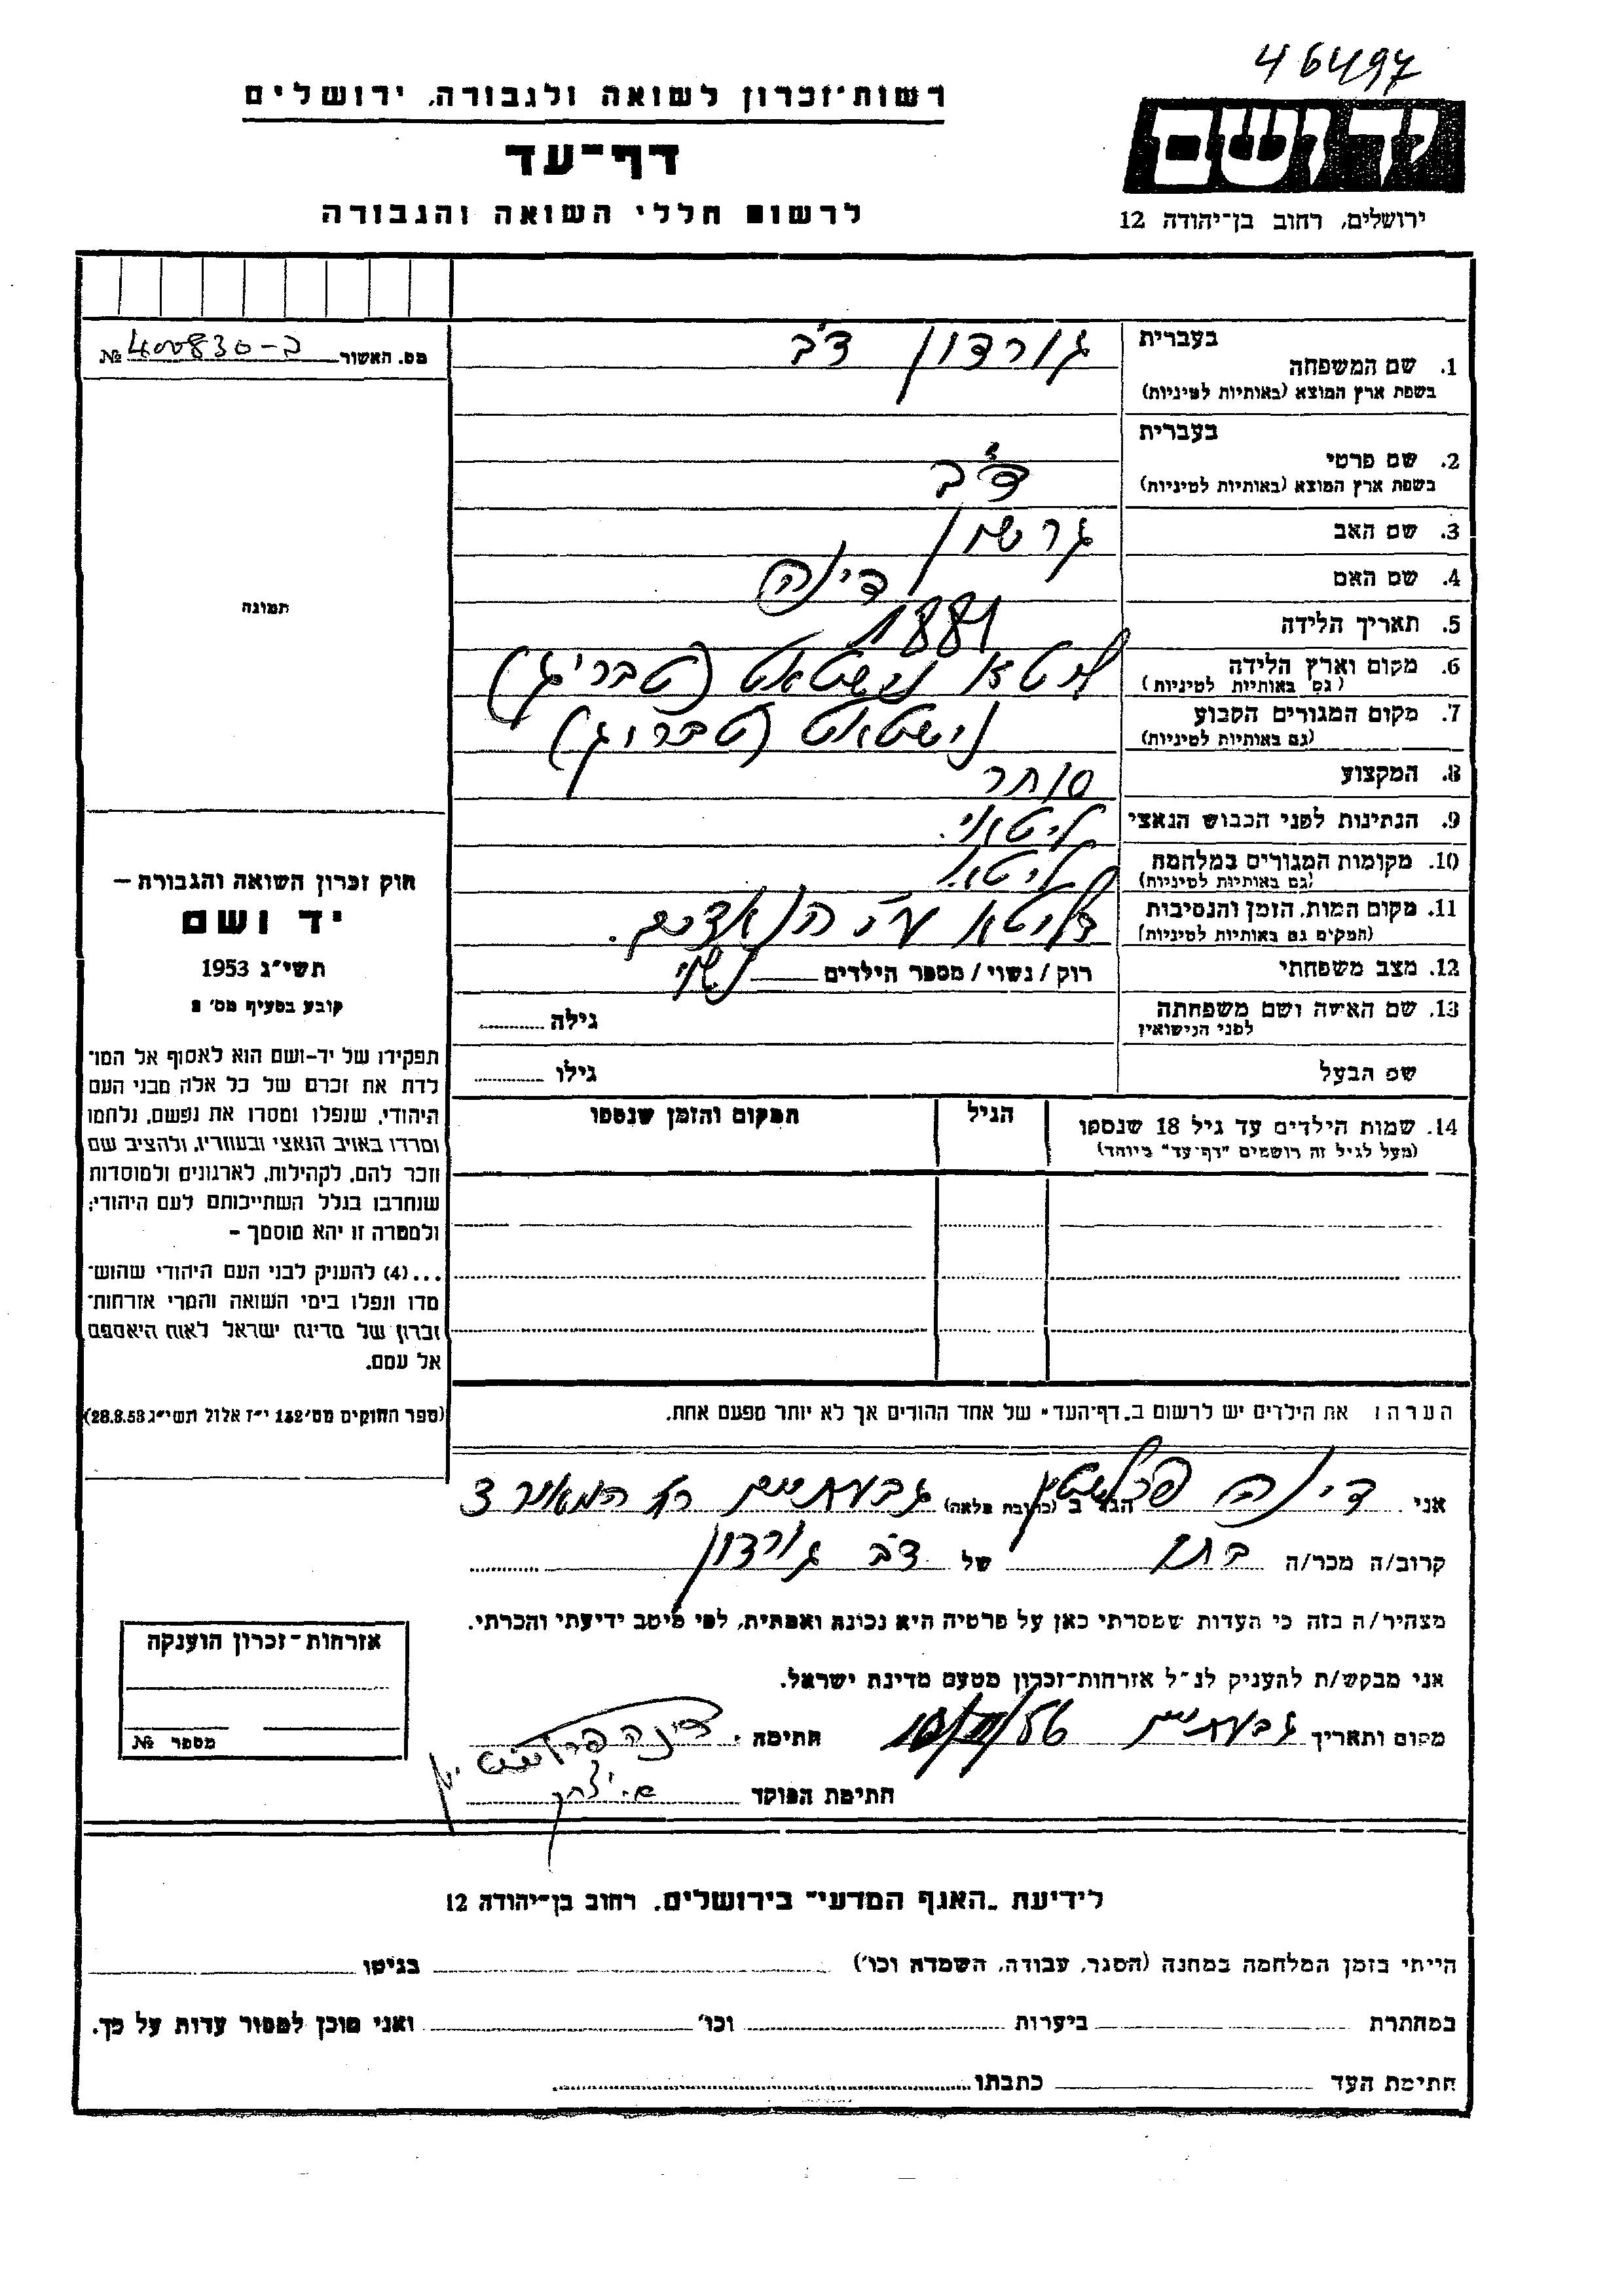 46497
רשות־זכרון לשואה ולגבורה, ירושלים
יד ושם
דף־עד
לרשום חללי השואה והגבורה
ירושלים, רחוב בן־יהודה 12
מס. האשור ב-400830 №
בעברית
1. שם המשפחה גורדון דב
בשפת ארץ המוצא (באותיות לטיניות)
בעברית
2. שם פרטי דב
בשפת ארץ המוצא (באותיות לטיניות)
3. שם האב גרשון
4. שם האם דינה
5. תאריך הלידה 1881
6. מקום וארץ הלידה ליטא נישטאט (טבריג)
(גם באותיות לטיניות)
7. מקום המגורים הקבוע נישטאט (טברוג)
(גם באותיות לטיניות)
8. המקצוע סוחר
9. הנתינות לפני הכבוש הנאצי ליטאי.
10. מקומות המגורים במלחמה ליטא.
(גם באותיות לטיניות)
11. מקום המות, הזמן והנסיבות בליטא ע"י הנאצים.
(המקום גם באותיות לטיניות)
12. מצב משפחתי רוק / נשוי / מספר הילדים נשוי
13. שם האישה ושם משפחתה גילה
לפני הנישואין
שם הבעל גילו
14. שמות הילדים עד גיל 18 שנספו הגיל המקום והזמן שנספו
(מעל לגיל זה רושמים "דף־עד" ביוחד)
תמונה
חוק זכרון השואה והגבורה –
יד ושם
תשי"ג 1953
קובע בסעיף מס' 2
תפקידו של יד-ושם הוא לאסוף אל המו־
לדת את זכרם של כל אלה מבני העם
היהודי, שנפלו ומסרו את נפשם, נלחמו
ומרדו באויב הנאצי ובעוזריו, ולהציב שם
וזכר להם, לקהילות, לארגונים ולמוסדות
שנחרבו בגלל השתייכותם לעם היהודי;
ולמטרה זו יהא מוסמך –
...(4) להעניק לבני העם היהודי שהוש־
מדו ונפלו בימי השואה והמרי אזרחות־
זכרון של מדינת ישראל לאות היאספם
אל עמם.
(ספר החוקים מס' 132 י"ז אלול תשי"ג 28.8.53)
הערה: את הילדים יש לרשום ב"דף־העד" של אחד ההורים אך לא יותר מפעם אחת.
אני דינה הגר ב (כתובת מלאה) גבעתיים רח המאירי 3
קרוב/ה מכר/ה בתו של דב גורדון
מצהיר/ה בזה כי העדות שמסרתי כאן על פרטיה היא נכונה ואמתית, לפי מיטב ידיעתי והכרתי.
אני מבקש/ת להעניק לנ"ל אזרחות־זכרון מטעם מדינת ישראל.
מקום ותאריך גבעתיים 56 חתימה דינה
חתימת הפוקד
אזרחות־זכרון הוענקה
מספר №
לידיעת "האגף המדעי" בירושלים, רחוב בן־יהודה 12
הייתי בזמן המלחמה במחנה (הסגר, עבודה, השמדה וכו') בגיטו
במחתרת ביערות וכו' ואני מוכן למסור עדות על כך.
חתימת העד כתבתו